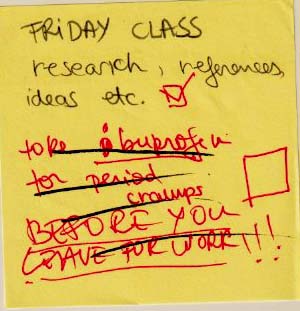 FRiDAY CLASS
research, references,
ideas etc.
take ibuprofen
for period
cramps
BEFORE YOU
LEAVE FOR WORK!!!